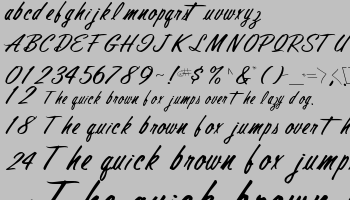 abcdefghijkl mnopqrst uvwxyz
ABCDEFGHIJKLMNOPQRSTU
0123456789~!@#$%^&*()-_=>
12 The quick brown fox jumps over the lazy dog.
18 The quick brown fox jumps over th
24 The quick brown fox jump
The quick brown